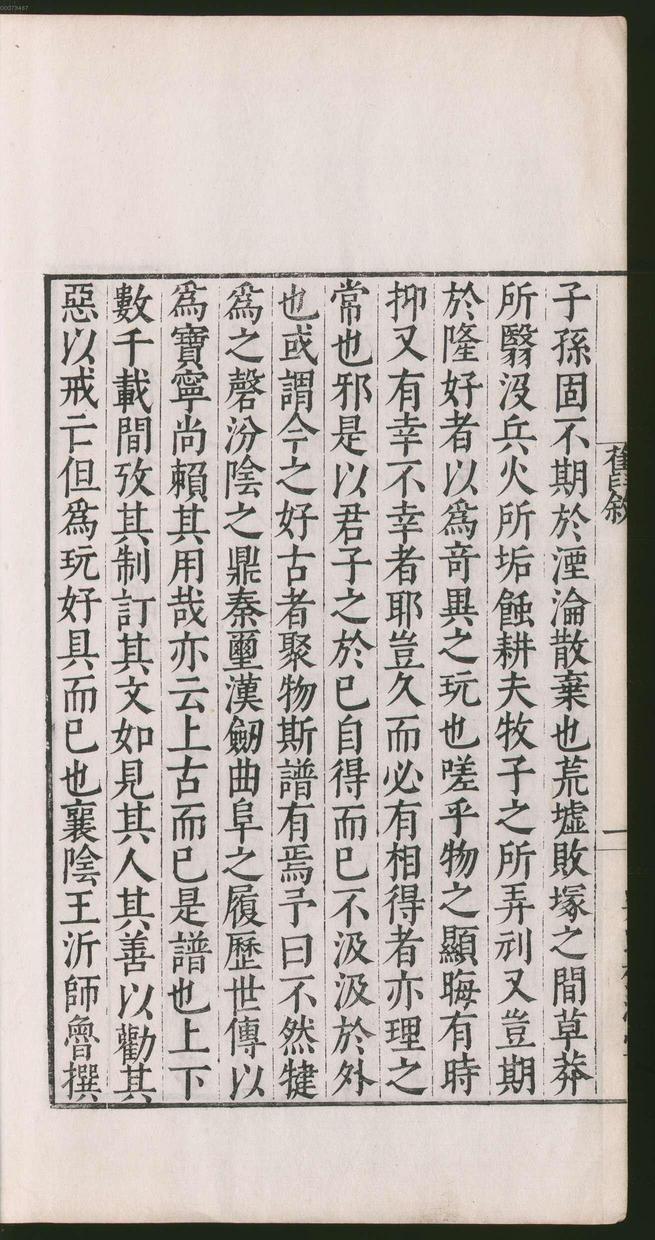 00073467
舊叙
一
子孫固不期於湮淪散棄也荒墟敗塚之間草莽
所翳沒兵火所垢蝕耕夫牧子之所弄刓又豈期
於隆好者以為竒異之玩也嗟乎物之顯晦有時
抑又有幸不幸者耶豈久而必有相得者亦理之
常也邪是以君子之於己自得而已不汲汲於外
也或謂今之好古者聚物斯譜有焉予曰不然犍
為之磬汾陰之鼎秦璽漢劒曲阜之履歷世傳以
為寶寧尚賴其用哉亦云上古而已是譜也上下
數千載間攷其制訂其文如見其人其善以勸其
惡以戒亡但為玩好具而已也襄陰王沂師魯撰